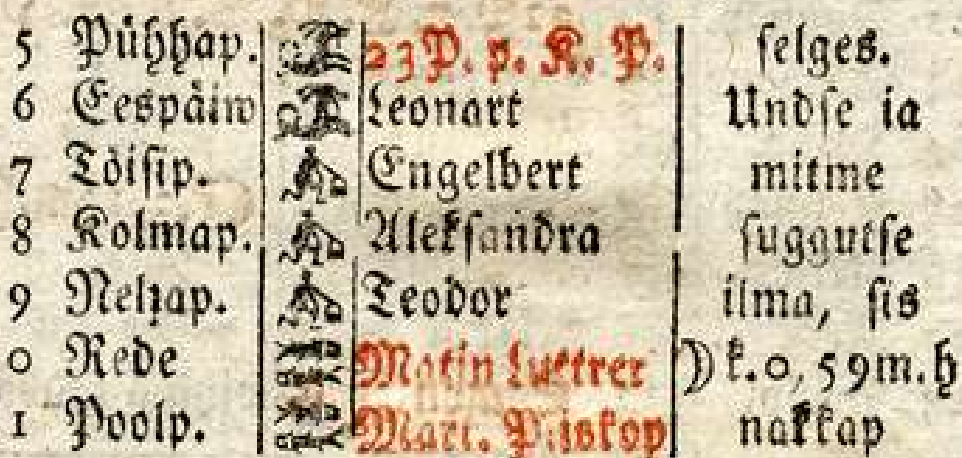 5 Pühhap. 23 P. p. K. P. selges.
6 Eespäiw Leonart Undse ia
7 Töisip. Engelbert mitme
8 Kolmap. Aleksandra suggutse
9 Nelzap. Teodor ilma, sis
0 Rede Motin Luttrer ☽ k. 0, 59m. h
1 Poolp. Mart. Piiskop nakkap